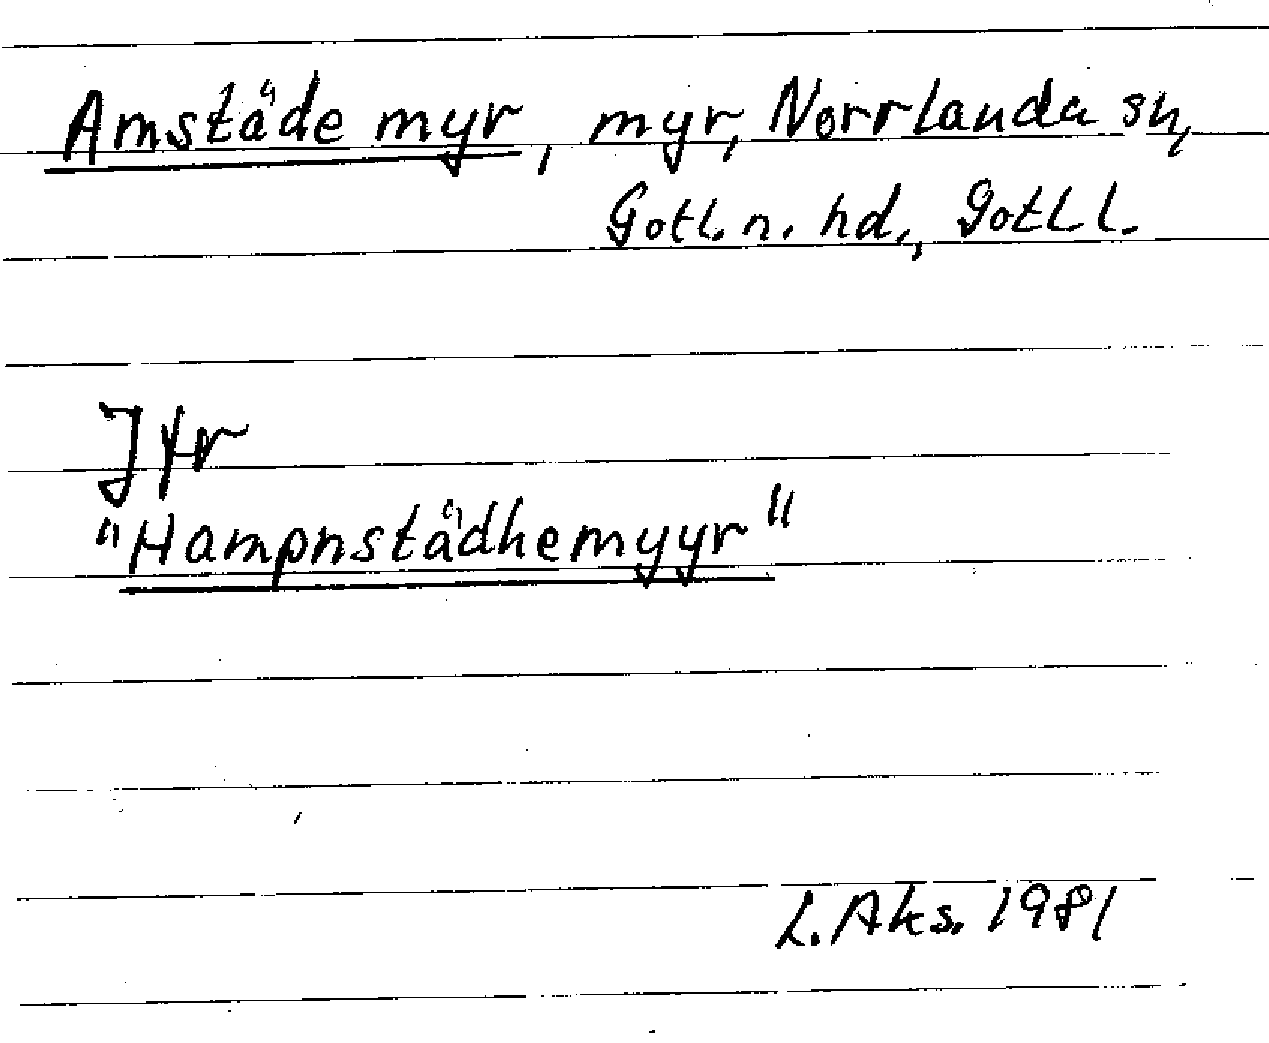 Amstäde myr, myr, Norrlanda sn,
Gotl. n. hd., Gotl. l.
Jfr
"Hampnstädhemyyr"
L. Aks. 1981